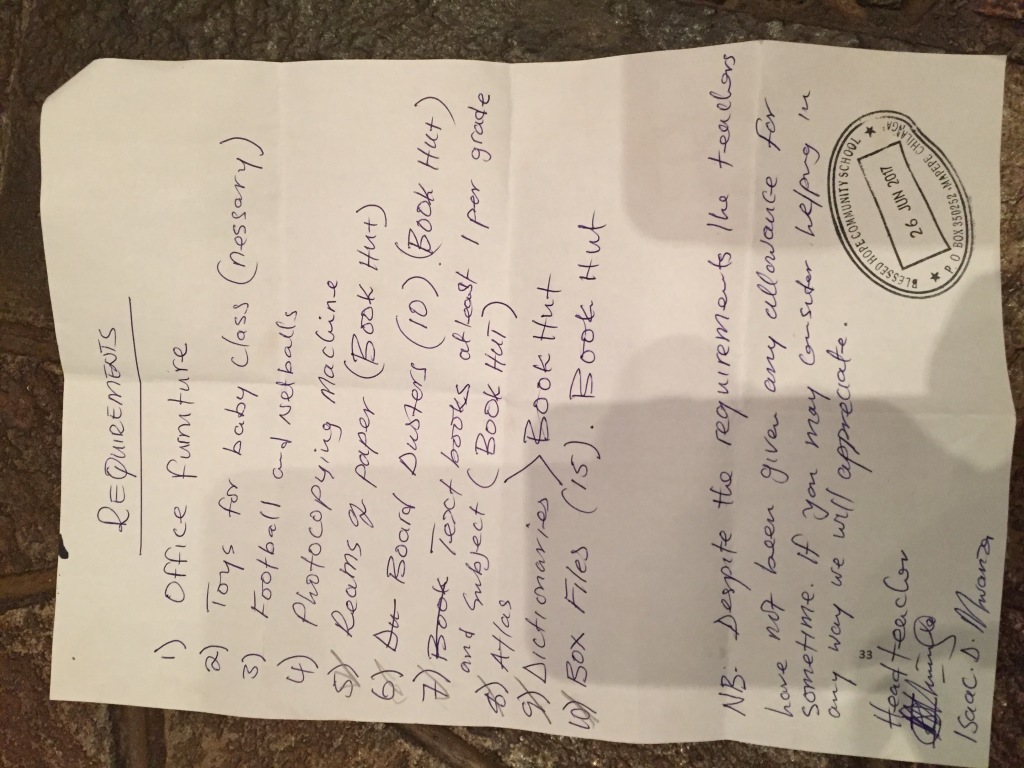 REQUIREMENTS
1) Office furniture
2) Toys for baby class (nessary)
3) Football and Netballs
4) Photocopying Machine
5) Reams of paper (Book Hut)
6) Du Board Dusters (10) (Book Hut)
7) Book Text books atleast 1 per grade
and Subject (BOOK HUT)
8) Atlas
9) Dictionaries > Book Hut
10) Box Files (15). Book Hut
NB: Despite the requirements the teachers
have not been given any allowance for
sometime. If you may consider helping in
any way we will appreciate.
33
Headteacher
Isaac. D. Mwanza
BLESSED HOPE COMMUNITY SCHOOL
26 JUN 2017
P O BOX 350252 - MAPEPE CHILANGA